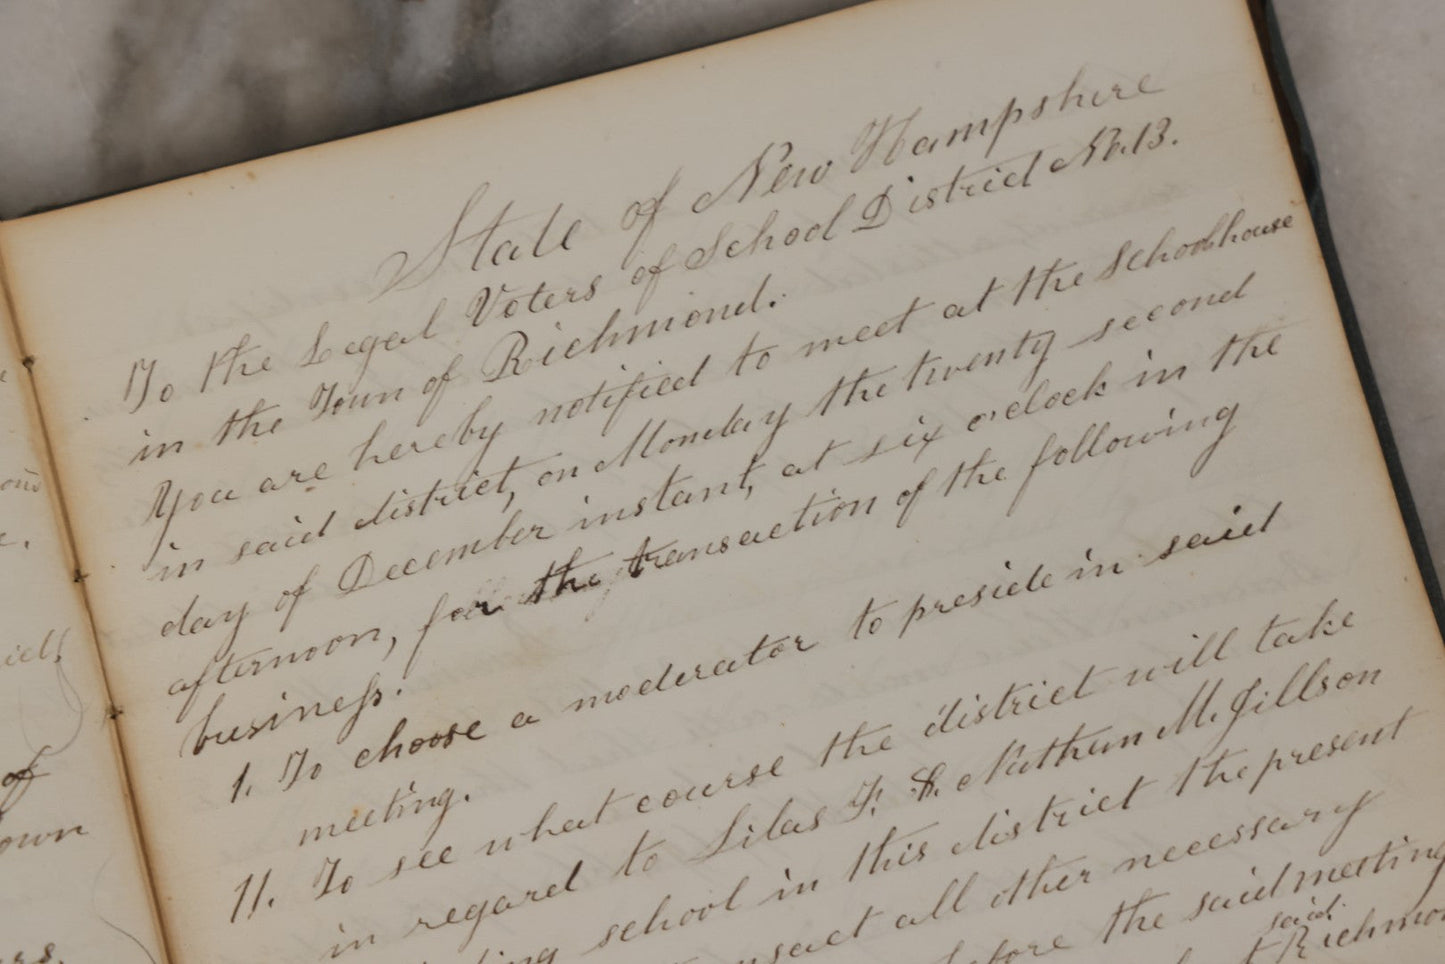 State of New Hampshire
To the Legal Voters of School District No. 13.
in the Town of Richmond.
You are hereby notified to meet at the schoolhouse
in said district, on Monday the twenty second
day of December instant, at six o'clock in the
afternoon, for the transaction of the following
business.
1. To choose a moderator to preside in said
meeting.
11. To see what course the district will take
in regard to Silas F. & Nathan M. Jillson
school in this district the present
all other necessary
before the said meeting
said
Richmon
of
own
ers.